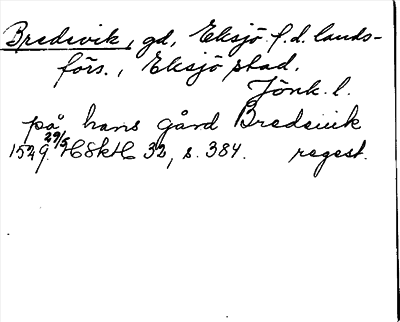 Bredevik, gd, Eksjö f.d. lands-
förs., Eksjö stad.
Jönk. l.
på hans gård Bredeuik
1529 29/5 HSkH 32, s. 384. regest.